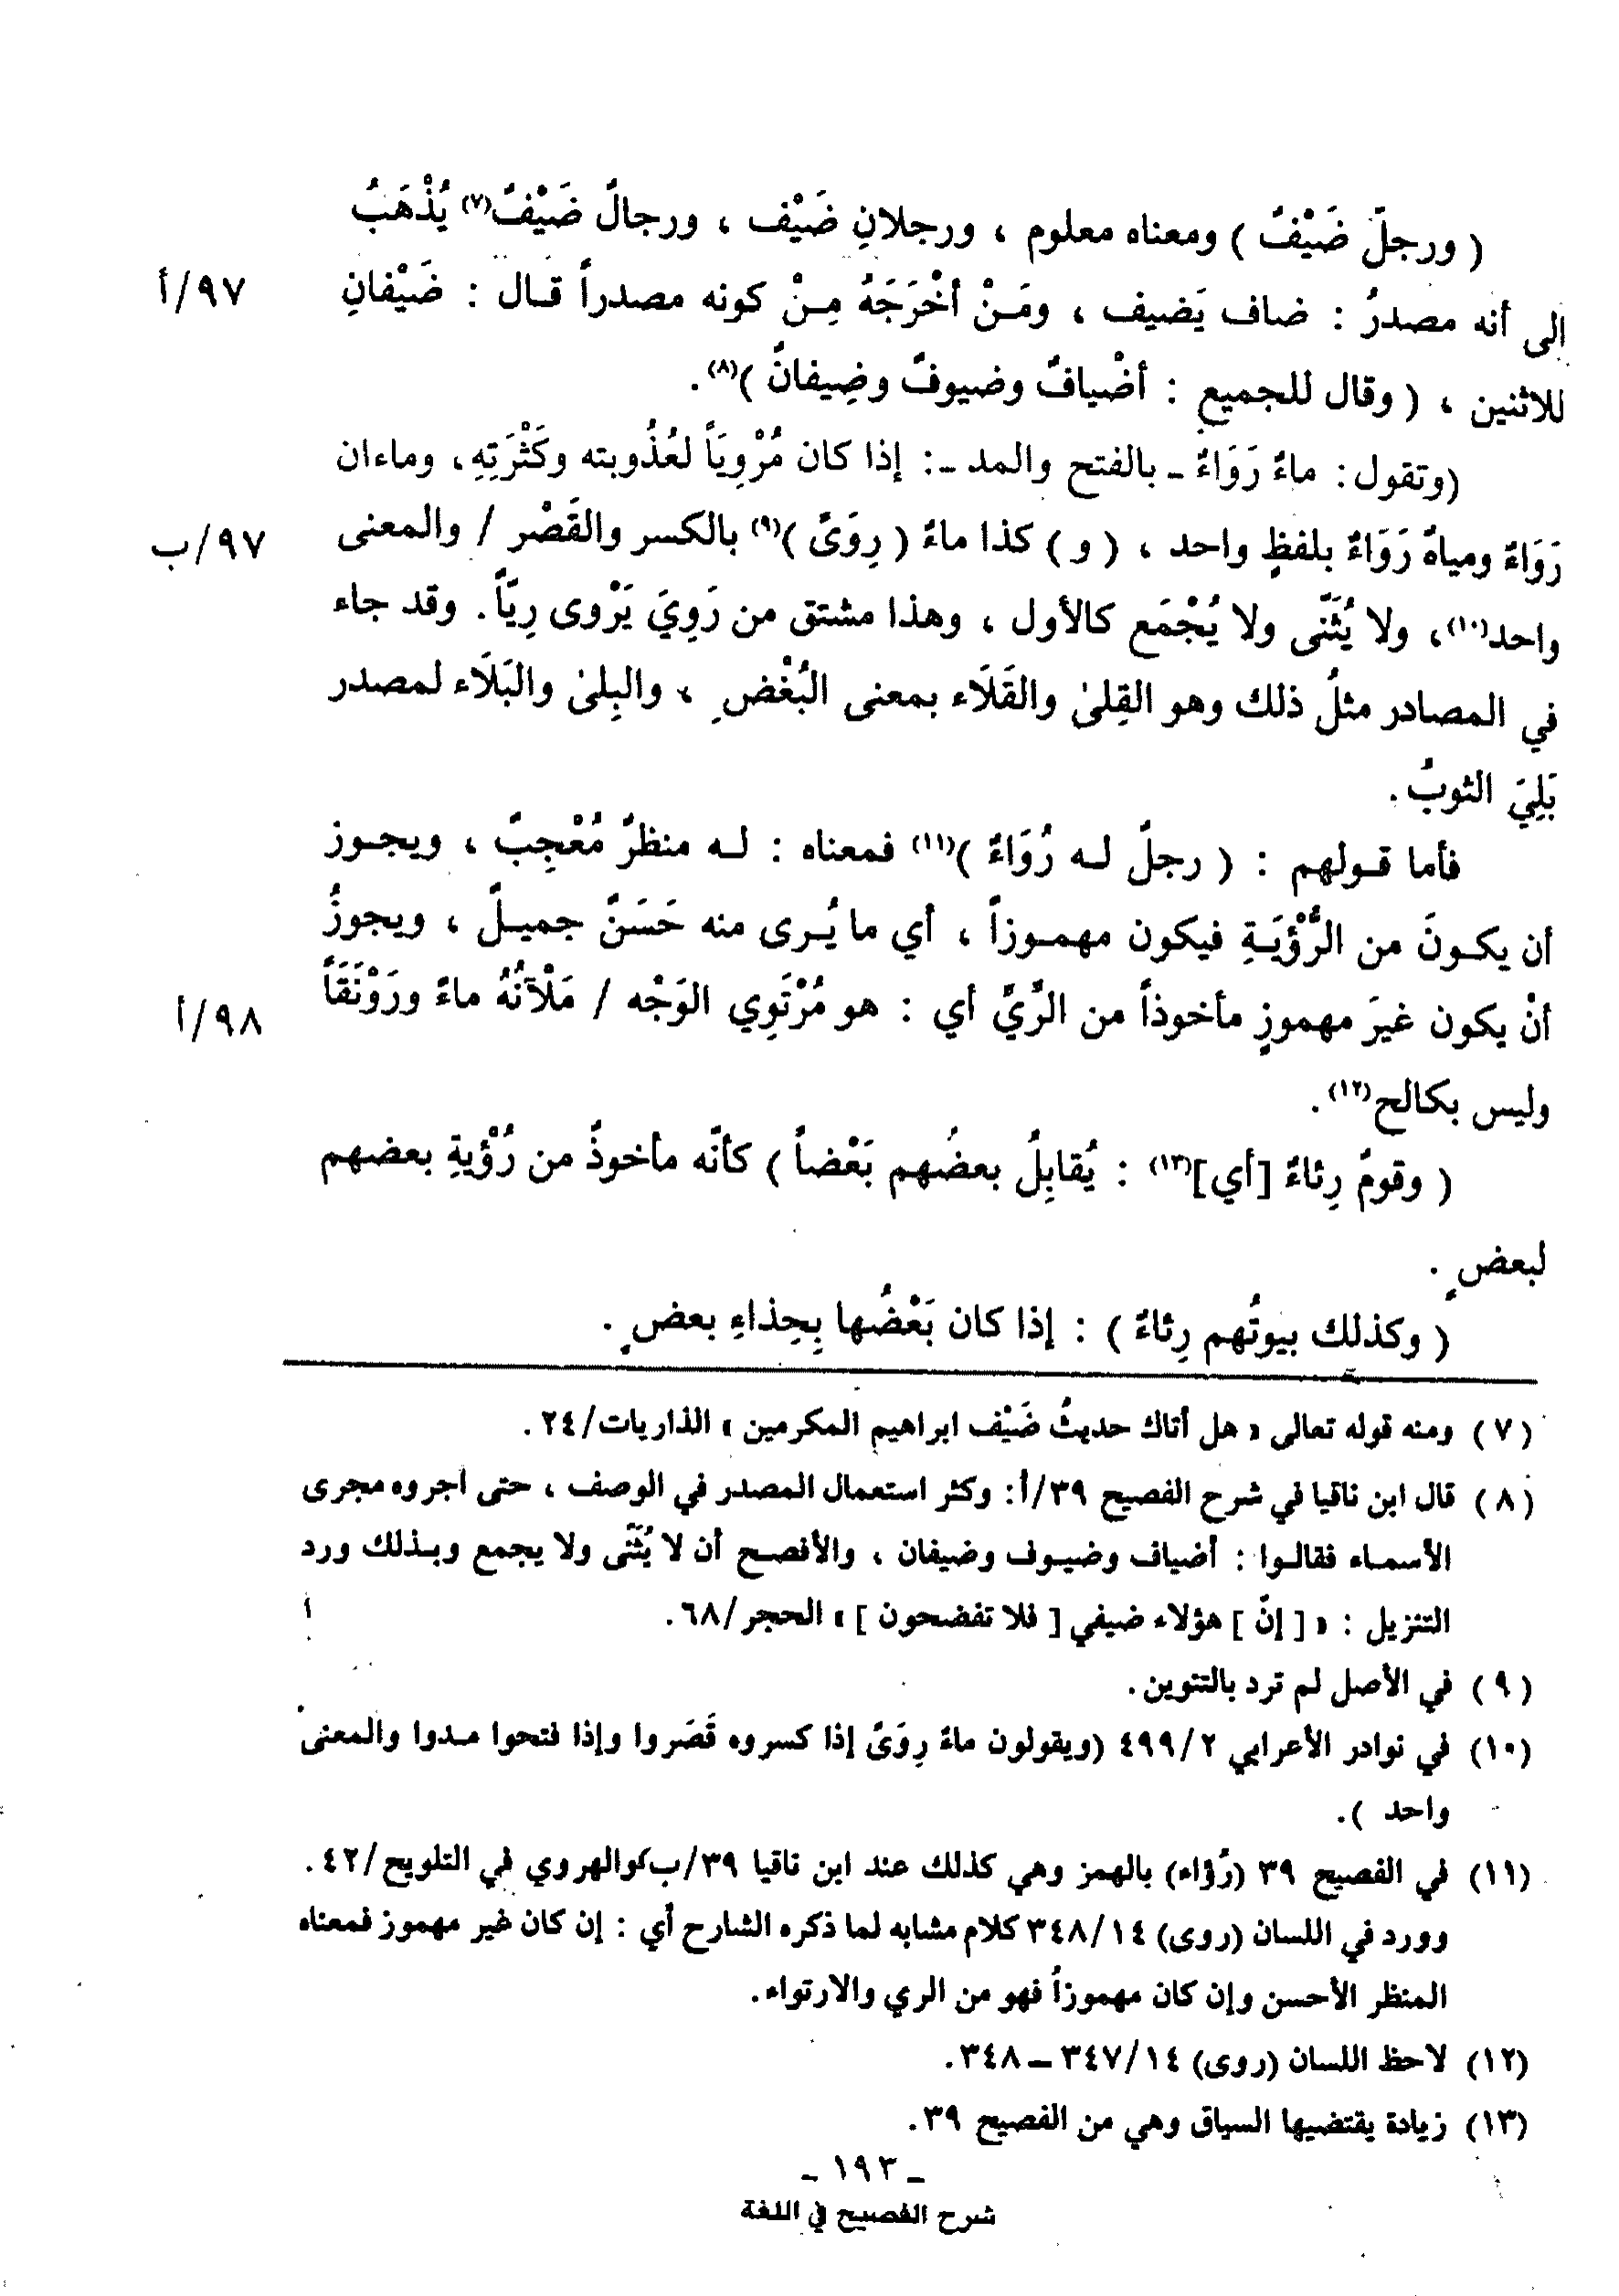 ( ورجلٌ ضَيْفٌ ) ومعناه معلوم ، ورجلانِ ضَيْف ، ورجالٌ ضَيْفٌ(٧) يُذْهَبُ
إلى أنه مصدرُ : ضاف يَضيف ، ومَـنْ أخْرَجَهُ مِـنْ كونه مصدراً قـال : ضَيْفانِ ٩٧/أ
للاثنين ، ( وقال للجميع : أضْيافٌ وضيوفٌ وضِيفانٌ )(٨).
(وتقول: ماءٌ رَوَاءٌ ـ بالفتح والمد ـ: إذا كان مُرْوِيَاً لعُذُوبته وكَثْرَتِهِ، وماءان
رَوَاءٌ ومياهٌ رَوَاءٌ بلفظٍ واحد ، ( و ) كذا ماءٌ ( رِوَىً )(٩) بالكسر والقَصْر / والمعنى ٩٧/ب
واحد(١٠)، ولا يُثَنّى ولا يُجْمَع كالأول ، وهذا مشتق من رَوِيَ يَرْوى رِيّاً. وقد جاء
في المصادر مثلُ ذلك وهو القِلىٰ والقَلَاء بمعنى البُغْضِ ، والبِلىٰ والبَلَاء لمصدر
بَلِيَ الثوبُ.
فأما قـولهم : ( رجلٌ لـه رُوَاءٌ )(١١) فمعناه : لـه منظرٌ مُعْجِبٌ ، ويجـوز
أن يكـونَ من الرُّؤْيَـةِ فيكون مهمـوزاً ، أي ما يُـرى منه حَسَنٌ جميـلٌ ، ويجوزُ
أنْ يكون غيرَ مهموزٍ مأخوذاً من الرِّيِّ أي : هو مُرْتَوِي الوَجْه / مَلْآنُهُ ماءً ورَوْنَقَاً ٩٨/أ
وليس بكالح(١٢).
( وقومٌ رِئاءٌ [أي](١٣) : يُقابِلُ بعضُهم بَعْضاً ) كأنّه مأخوذٌ من رُؤْيةِ بعضهم
لبعضٍ .
( وكذلك بيوتُهم رِئاءٌ ) : إذا كان بَعْضُها بِحِذاءِ بعضٍ .
(٧) ومنه قوله تعالى « هل أتاك حديثُ ضَيْف ابراهيم المكرمين » الذاريات/٢٤.
(٨) قال ابن ناقيا في شرح الفصيح ٣٩/أ: وكثر استعمال المصدر في الوصف ، حتى اجروه مجرى
الأسمـاء فقالـوا : أضياف وضيـوف وضيفان ، والأفصـح أن لا يُثَنّى ولا يجمع وبـذلك ورد
التنزيل : « [ إنّ ] هؤلاء ضيفي [ فلا تفضحون ] » الحجر/٦٨.
(٩) في الأصل لم ترد بالتنوين.
(١٠) في نوادر الأعرابي ٢/٤٩٩ (ويقولون ماءٌ رِوَىً إذا كسروه قَصَروا وإذا فتحوا مـدوا والمعنى
واحد ).
(١١) في الفصيح ٣٩ (رُؤاء) بالهمز وهي كذلك عند ابن ناقيا ٣٩/ب، والهروي في التلويح/٤٢.
وورد في اللسان (روى) ٣٤٨/١٤ كلام مشابه لما ذكره الشارح أي : إن كان غير مهموز فمعناه
المنظر الأحسن وإن كان مهموزاً فهو من الري والارتواء.
(١٢) لاحظ اللسان (روى) ٣٤٧/١٤ ـ ٣٤٨.
(١٣) زيادة يقتضيها السياق وهي من الفصيح ٣٩.
ـ ١٩٣ ـ
شرح الفصيح في اللغة